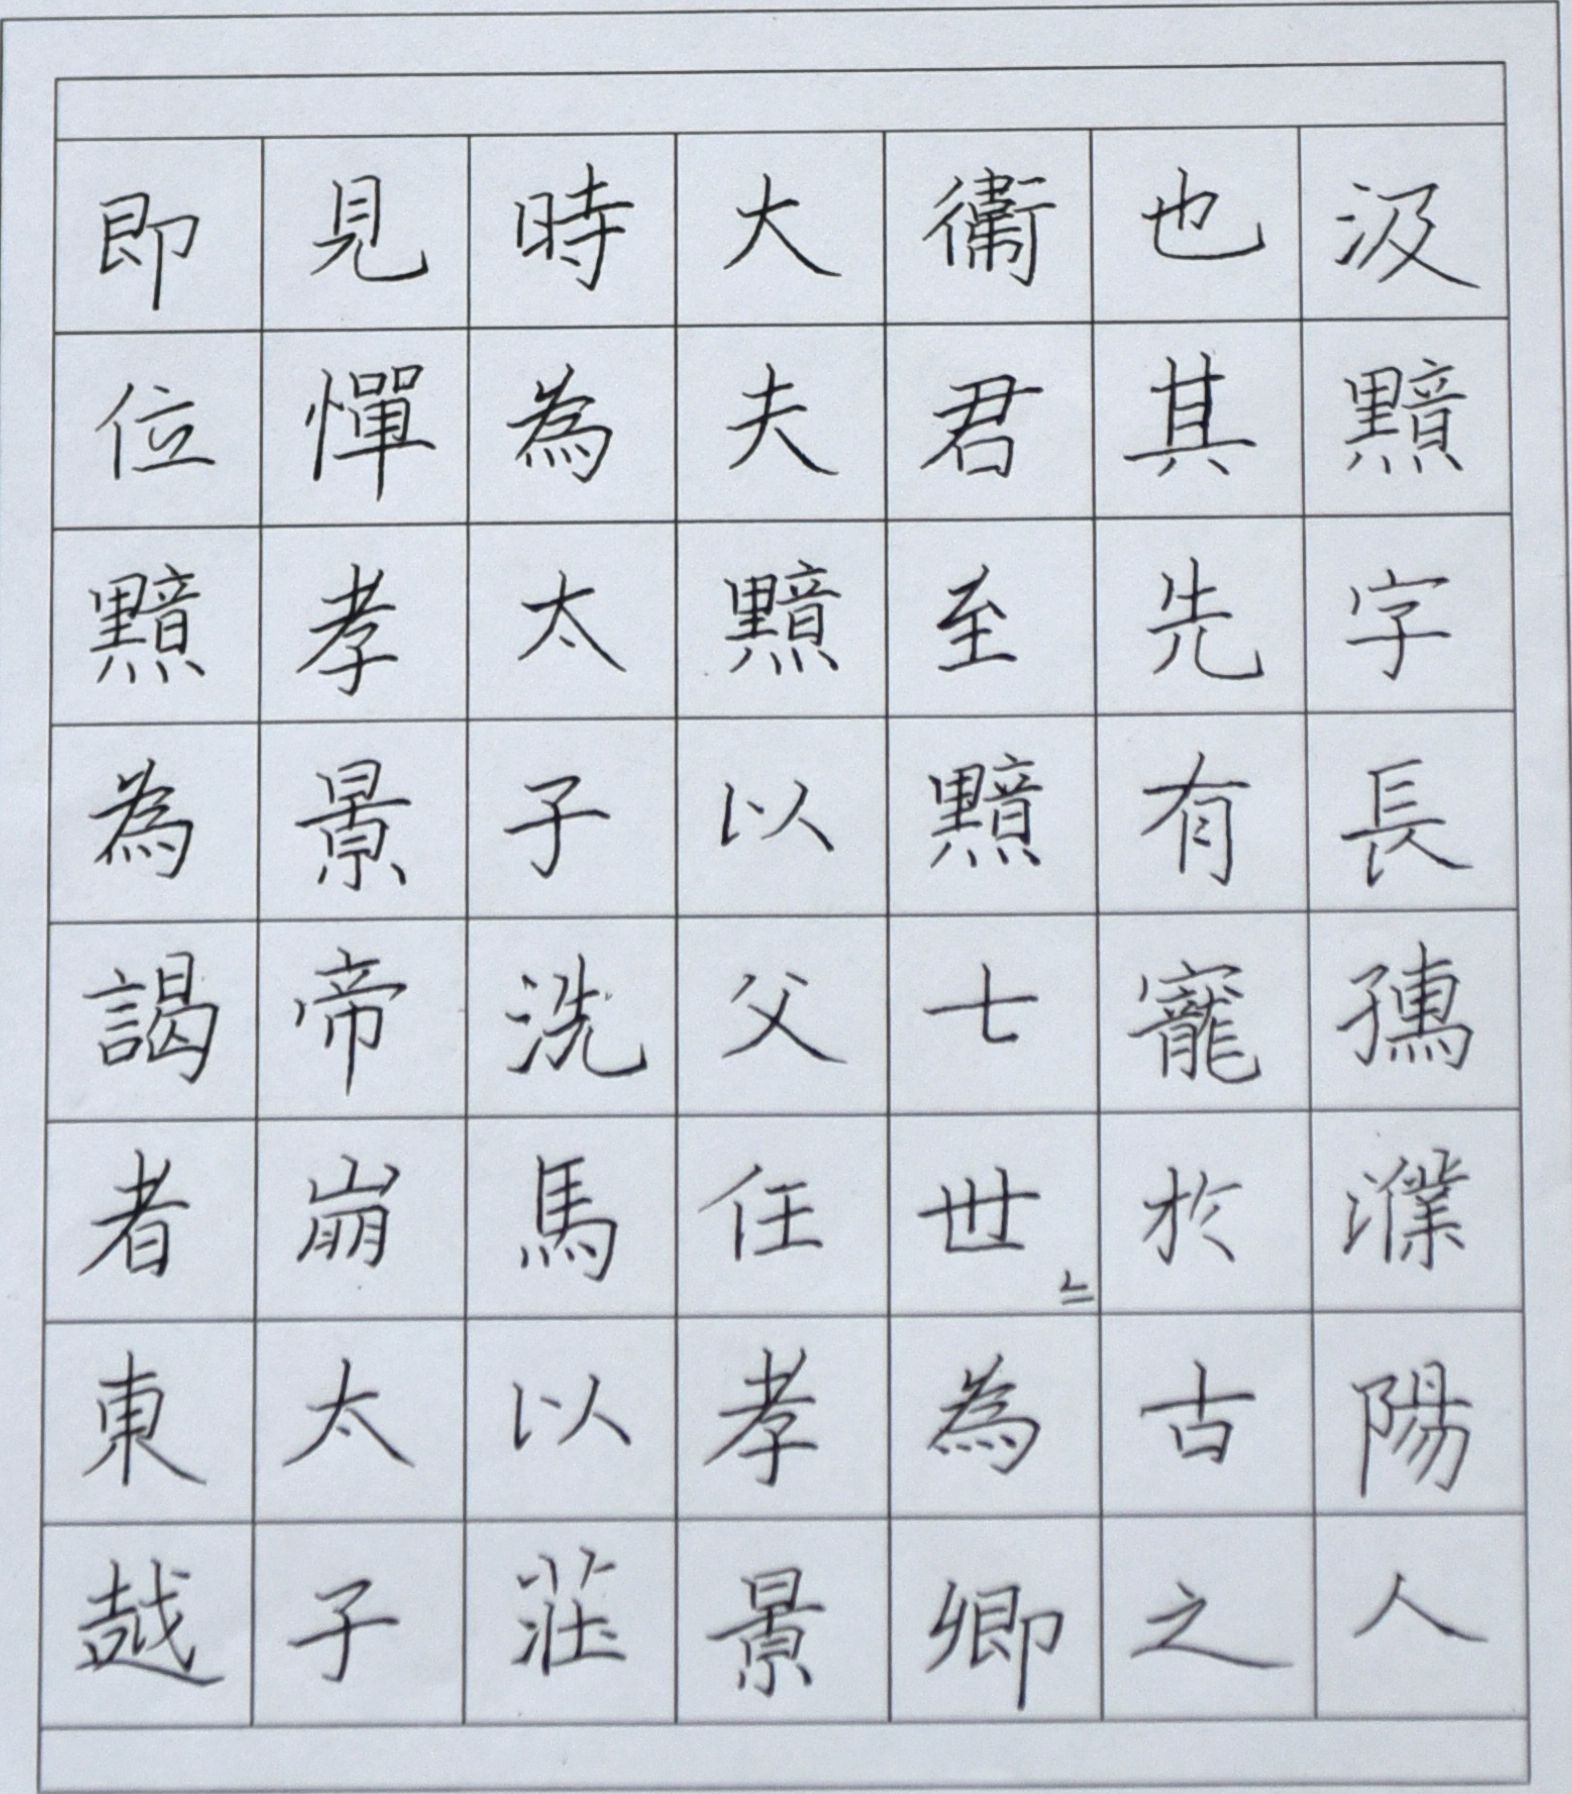 汲黯字長孺濮陽人
也其先有寵於古之
衛君至黯七世〻為卿
大夫黯以父任孝景
時為太子洗馬以莊
見憚孝景帝崩太子
即位黯為謁者東越